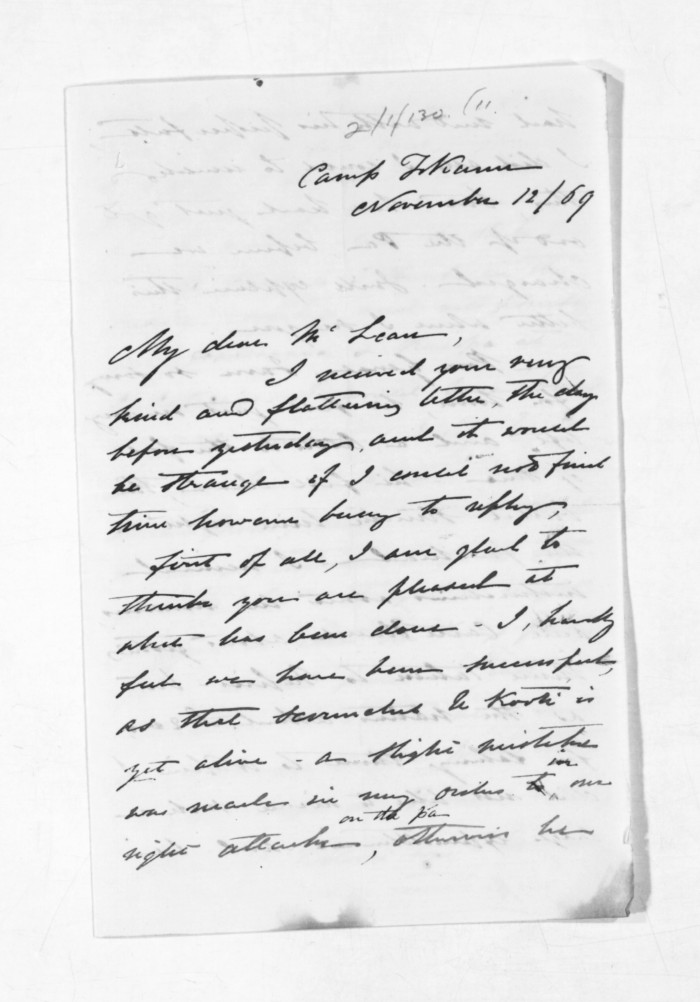 2/1/130 (11.
Camp Tokanu
November 12/69
My dear McLean,
I received your very
kind and flattering letter, the day
before yesterday, and it would
be strange if I could not find
time however busy to reply,
first of all, I am glad to
think you are pleased at
what has been done - I, hardly
feel we have been successful,
as that scoundrel Te Kooti is
yet alive - a slight mistake
was made in my orders in our
right attack on the pa, otherwise he